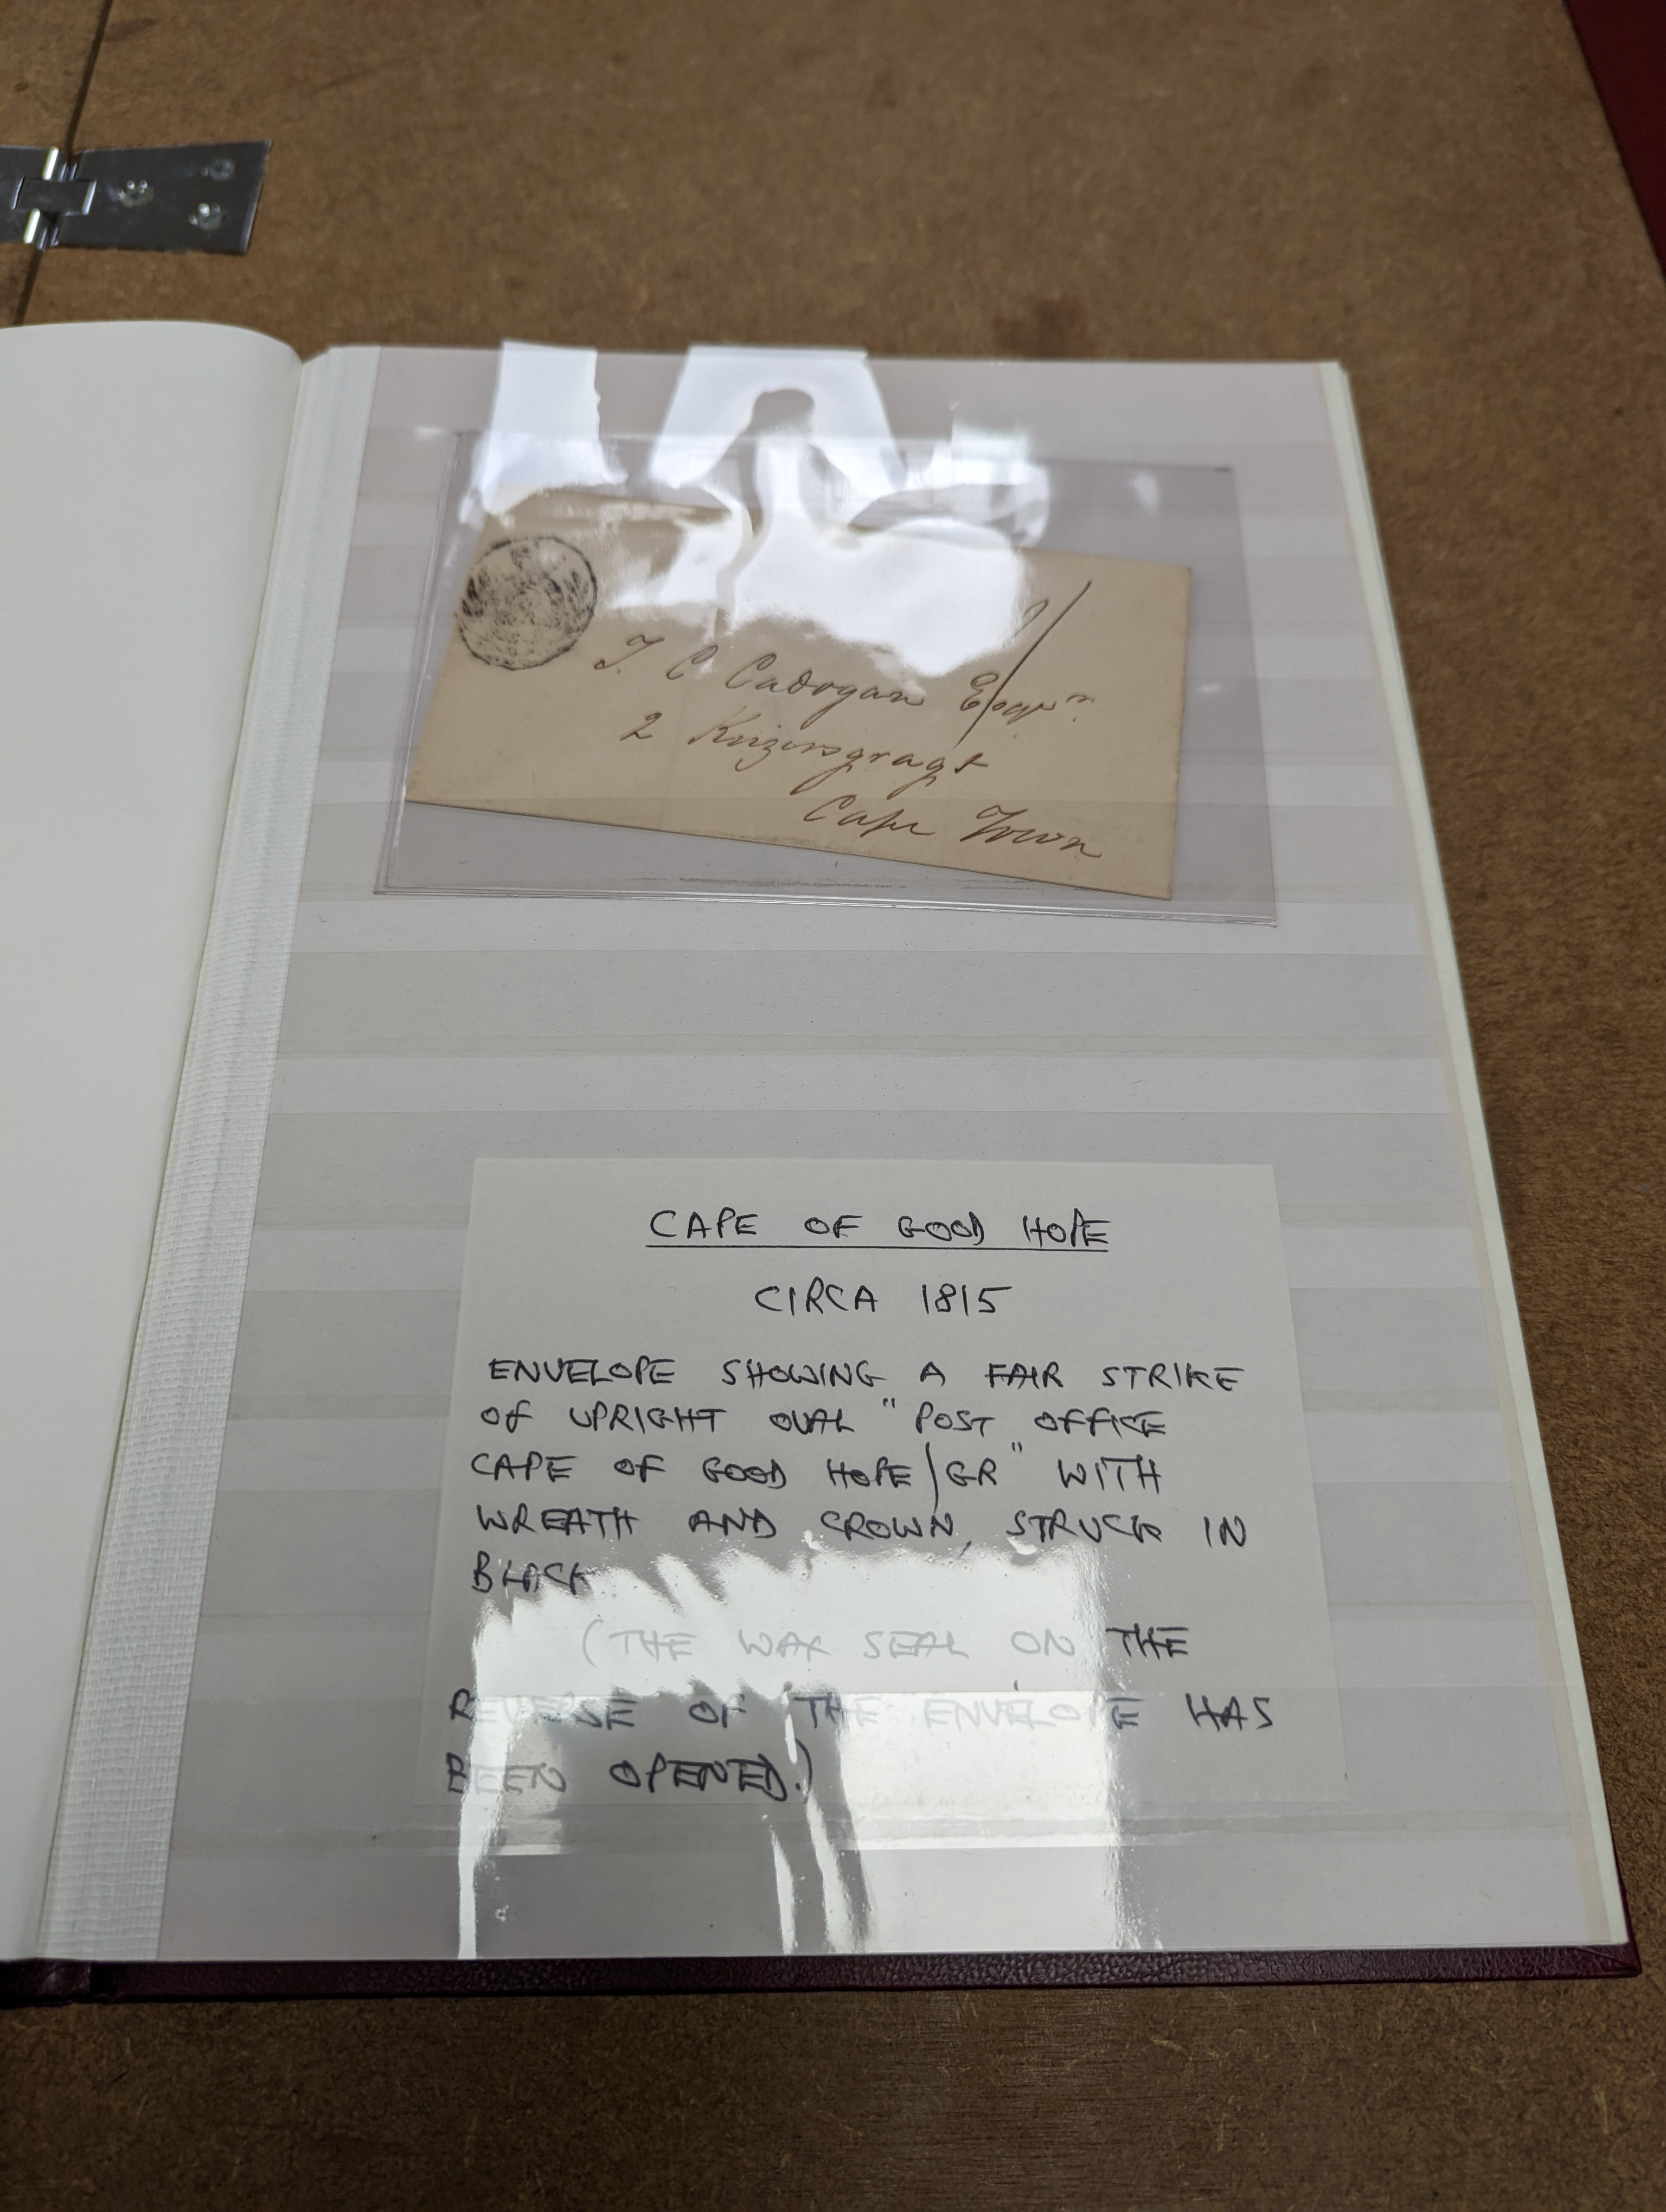 J. C Cadogan Esqr
2 Keizersgragt
Cape Town
CAPE OF GOOD HOPE
CIRCA 1815
ENVELOPE SHOWING A FAIR STRIKE
OF UPRIGHT OVAL "POST OFFICE
CAPE OF GOOD HOPE/GR" WITH
WREATH AND CROWN, STRUCK IN
BLACK
(THE WAX SEAL ON THE
REVERSE OF THE ENVELOPE HAS
BEEN OPENED.)